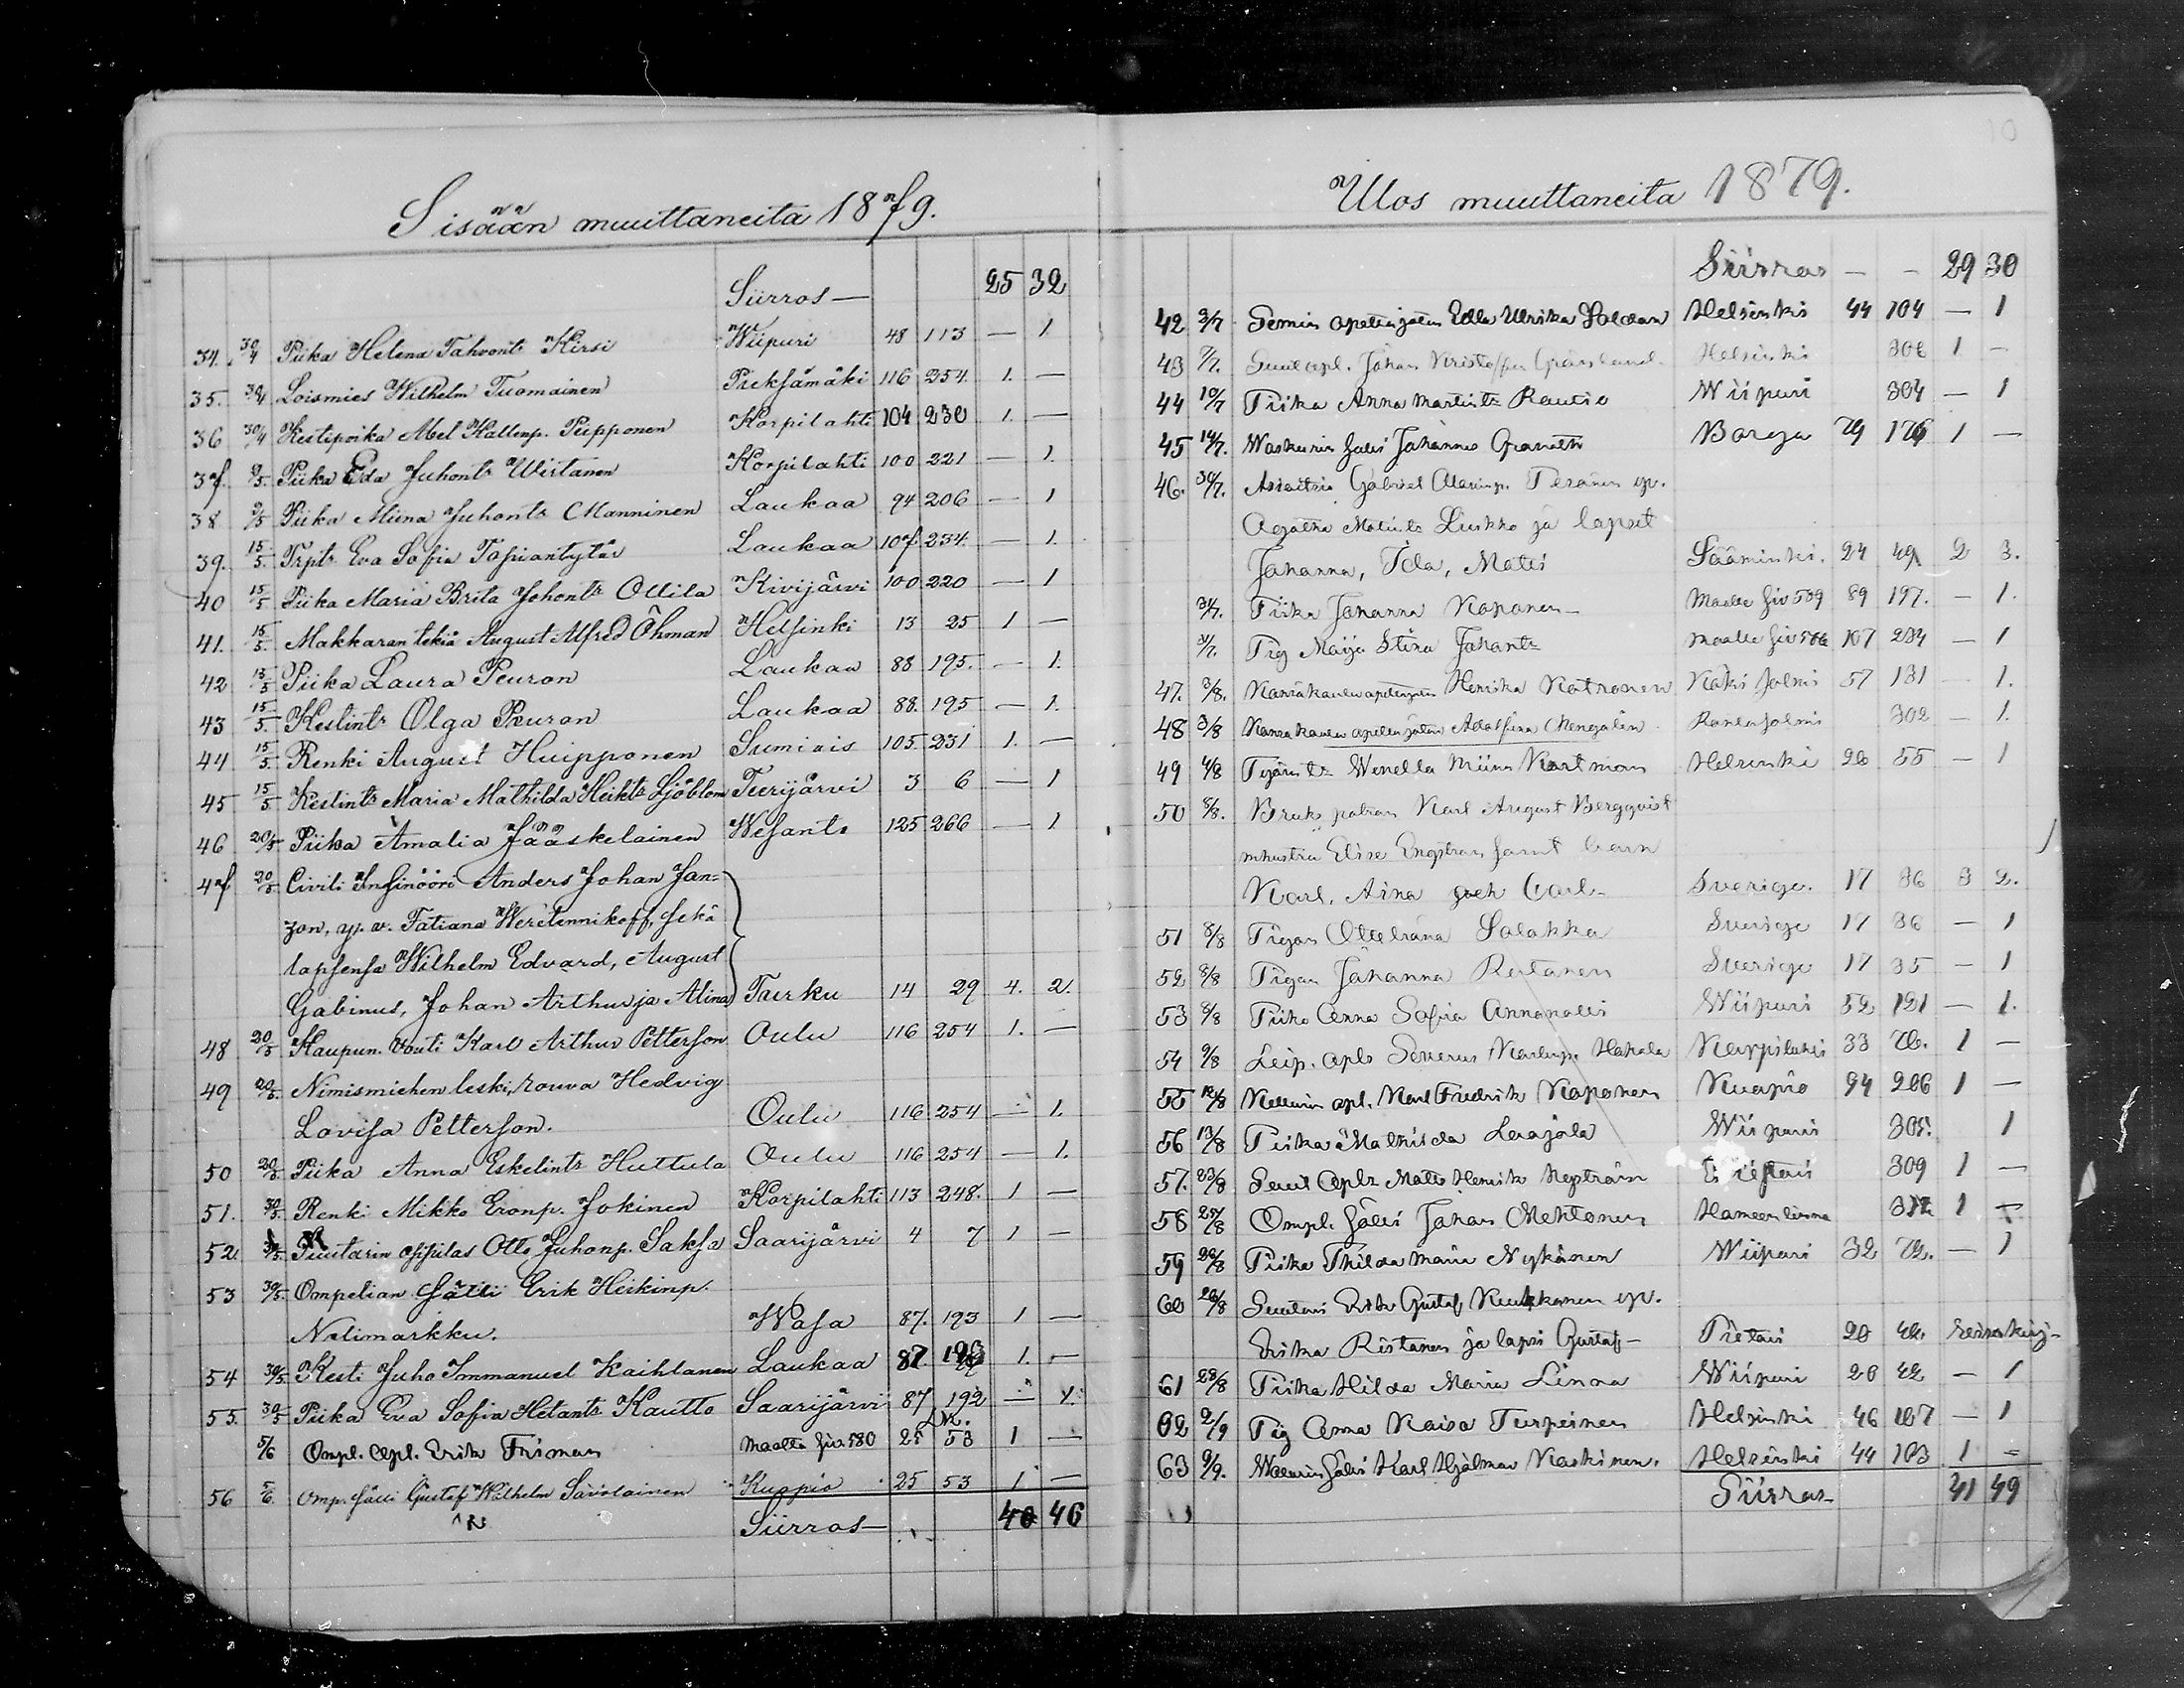 Sisään muuttaneita 1879.
Siirros — 25 32
34. 30/4 Piika Helena Tahvonts Kirsi Wiipuri 48 113 — 1
35. 30/4 Loismies Wilhelm Tuomainen Pieksämäki 116 254 1. —
36 30/4 Kestipoika Abel Kallenp. Piipponen Korpilahti 104 230 1. —
37. 9/5. Piika Eda Juhonts Wirtanen Korpilahti 100 221 — 1.
38. 9/5 Piika Miina Juhonts Manninen Laukaa 94 206 — 1
39. 15/5. Trpts Eva Sofia Tapiantytär Laukaa 107 234. — 1.
40 15/5 Piika Maria Brita Johonts Ollila Kivijärvi 100 220 — 1
41. 15/5. Makkaran tekiä August Alfred Öhman Helsinki 13 25 1 —
42 15/5 Piika Laura Peuron Laukaa 88 195. — 1.
43 15/5. Kestints Olga Peuron Laukaa 88. 195 — 1.
44 15/5. Renki August Huipponen Sumiais 105. 231 1. —
45 15/5. Kestints Maria Mathilda Heikts Sjöblom Teerijärvi 3 6 — 1
46 20/5 Piika Amalia Jääskelainen Wesants 125 266 — 1
47 20/5 Civili Insinööri Anders Johan Jan=
zon, y. v. Tatiana Weretennikoff, sekä
lapsensa Wilhelm Edvard, August
Gabinus, Johan Arthur ja Alina Turku 14 29 4. 2.
48 20/5 Kaupun. vouti Karl Arthur Petterson Oulu 116 254 1. —
49 20/5. Nimismiehen leski, rouva Hedvig
Lovisa Petterson. Oulu 116 254 — 1.
50 20/5. Piika Anna Eskelints Huttula Oulu 116 254 — 1.
51. 30/5. Renki Mikko Eronp. Jokinen Korpilahti 113 248. 1 —
52 30/5. Suutarin oppilas Otto Juhonp. Saksa Saarijärvi 4 7 1 —
53 30/5. Ompelian sälli Erik Heikinp.
Nelimarkku. Wasa 87. 193 1 —
54 30/5. Kesti Juho Immanuel Kaihlanen Laukaa 87. 193 1. —
55. 30/5 Piika Eva Sofia Hetants Kautto Saarijärvi 87 192 — 1.
5/6 Ompl. Opl. Erik Friman Maalta siv. 580 25 53 1 —
56 5/6. Omp. sälli Gustaf Wilhelm Savolainen Kuopio 25 53 1 —
Siirros — 40 46
Ulos muuttaneita 1879.
10
Siirros — — 29 30
42 3/7 Semin. opettajatar Edla Ulrika Soldan Helsinki 44 104 — 1
43 7/7. Suut. opl. Johan Kristoffer Helsinki 306 1 —
44 10/7 Piika Anna Martints Rautio Wiipuri 304 — 1
45 14/7. Waskurin sälli Johannes Granath Borgå 79 176 1 —
46. 30/7. Gabriel Peränen yv.
Agatha Matints Luskko ja lapset
Johanna, Ida, Mati Sääminki. 24 49 2 3.
31/7. Piika Johanna Koponen — Maalle siv 509 89 197. — 1.
31/7. Pig Maija Stina Johants Maalle siv 586 107 234 — 1
47. 3/8. Kansakoulu opettajatar Henrika Kotronen Käkisalmi 57 131 — 1.
48 3/8 Kansakoulu opettajatar Adolfina Mengalin Rantasalmi 302 — 1.
49 4/8 Wenella Miina Hartman Helsinki 26 55 — 1
50 8/8. Bruks patron Karl August Bergqvist
m hustru Elise Engström samt barn
Karl, Aina och Carl — Sverige. 17 36 3 2.
51 8/8 Pigan Ottoliana Salakka Sverige 17 36 — 1
52 8/8 Pigan Johanna Rutanen Sverige 17 35 — 1
53 8/8 Piika Anna Sofia Annanolli Wiipuri 52 121 — 1.
54 9/8 Leip. opl. Severus Hakala Korpilahti 33 76. 1 —
55 12/8 Kellarin opl. Karl Fredrik Koponen Kuopio 94 206 1 —
56 13/8 Piika Mathilda Laajola Wiipuri 305. 1
57. 23/8 Suut Oplr Matts Henrik Nyström 309 1 —
58 25/8 Ompl. sälli Johan Mehtonen Hämeenlinna 312 1 —
59 26/8 Piika Thilda Maria Nykänen Wiipuri 32 72. — 1
60 26/8 Suutari Erik Gustaf Kuukkanen yv.
Erika Ristanen ja lapsi Gustaf — Pietari 20 42.
61 28/8 Piika Hilda Maria Linna Wiipuri 20 42 — 1
62 2/9 Pig Anna Kaisa Turpeinen Helsinki 46 107 — 1
63 9/9. sälli Karl Hjalmar Koskinen. Helsinki 44 103 1 —
Siirros 41 49